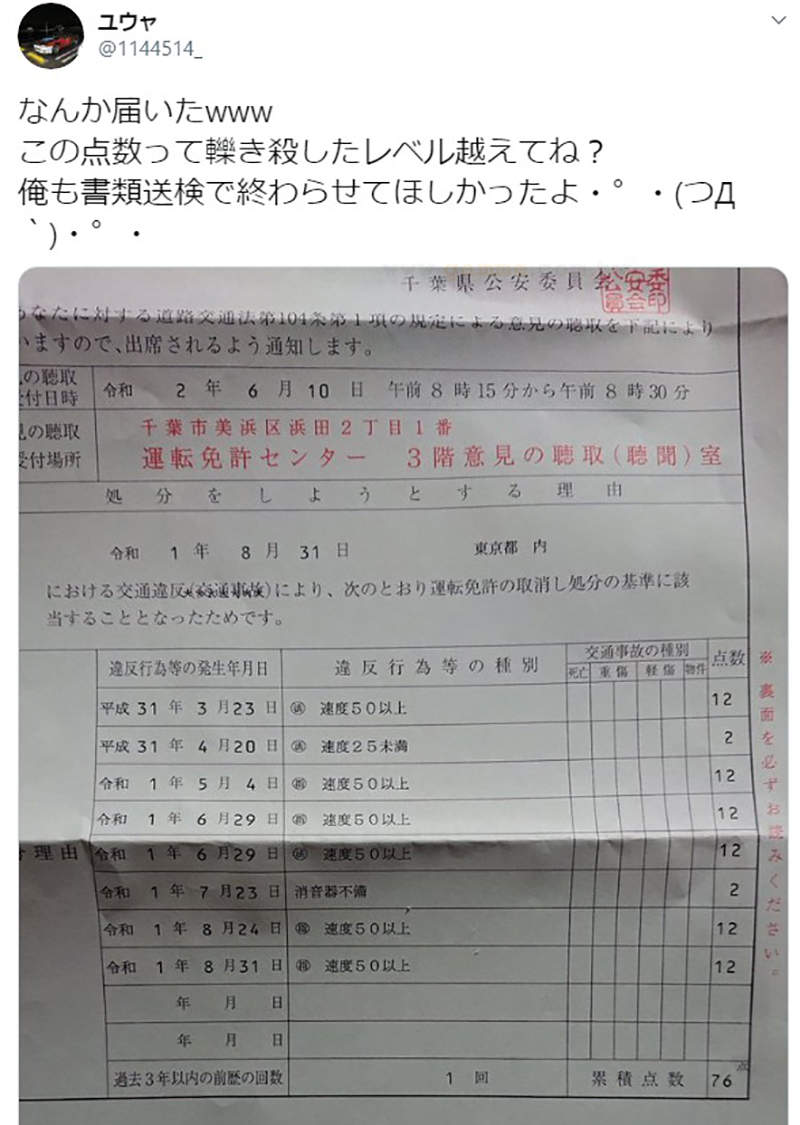 ユウャ
@1144514_
なんか届いたwww
この点数って轢き殺したレベル越えてね？
俺も書類送検で終わらせてほしかったよ・゜・(つД
｀)・゜・
千葉県公安委員会
公安委
員会印
あなたに対する道路交通法第104条第1項の規定による意見の聴取を下記により
いますので、出席されるよう通知します。
の聴取
付日時
令和 2 年 6 月 10 日 午前 8 時 15 分から午前 8 時 30 分
見の聴取
受付場所
千葉市美浜区浜田２丁目１番
運転免許センター ３階意見の聴取(聴聞)室
処分をしようとする理由
令和 1 年 8 月 31 日 東京都 内
における交通違反(交通事故)により、次のとおり運転免許の取消し処分の基準に該
当することとなったためです。
違反行為等の発生年月日 違反行為等の種別 交通事故の種別 点数
死亡 重傷 軽傷 物件
平成 31 年 3 月 23 日 速度５０以上 12
平成 31 年 4 月 20 日 速度２５未満 2
令和 1 年 5 月 4 日 速度５０以上 12
令和 1 年 6 月 29 日 速度５０以上 12
理由
令和 1 年 6 月 29 日 速度５０以上 12
令和 1 年 7 月 23 日 消音器不備 2
令和 1 年 8 月 24 日 速度５０以上 12
令和 1 年 8 月 31 日 速度５０以上 12
年 月 日
年 月 日
過去３年以内の前歴の回数 1 回 累積点数 76 点
※裏面を必ずお読みください。